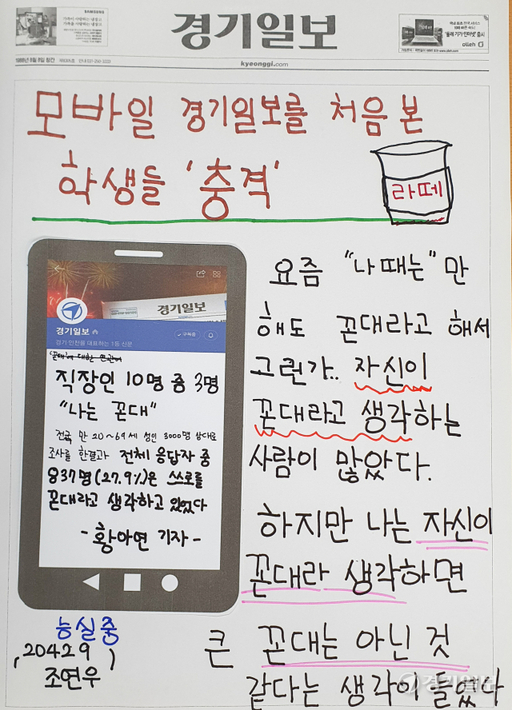 경기일보
kyeonggi.com
모바일 경기일보를 처음 본
학생들 '충격'
라떼
요즘 "나 때는" 만
해도 꼰대라고 해서
그런가.. 자신이
꼰대라고 생각하는
사람이 많았다.
하지만 나는 자신이
꼰대라 생각하면
큰 꼰대는 아닌 것
같다는 생각이 들었다
경기일보
경기일보
경기·인천을 대표하는 1등 신문
직장인 10명 중 3명
"나는 꼰대"
전국 만 20~69세 성인 3000명 상대로
조사를 한결과 전체 응답자 중
837명(27.9%)은 스스로를
꼰대라고 생각하고 있었다
-황아연 기자-
능실중
(20429)
조연우
경기일보